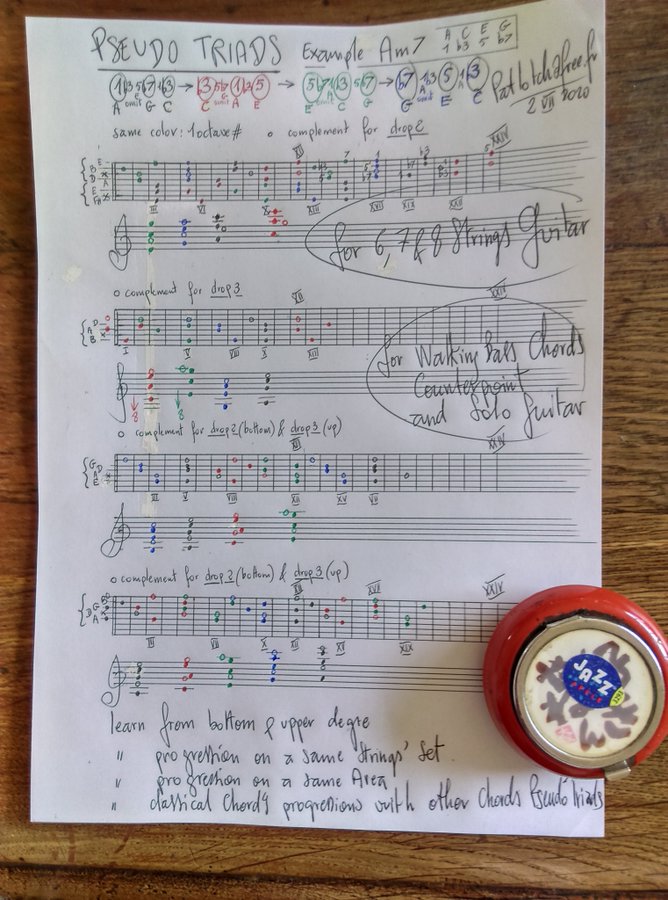 PSEUDO TRIADS Example Am7
A C E G
1 b3 5 b7
1 b3 5 b7 1 b3 → b3 5 b7 1 b3 5 → 5 b7 1 b3 5 b7 → b7 1 b3 5 1 b3
A omit E G C
C omit G A E
E omit A C G
G A omit E C
Patbotch@free.fr
2 VII 2020
same color: 1octave# o complement for drop2
XXIV
XII
III VI X XIII XVII XIX XXII
for 6, 7 & 8 Strings Guitar
o complement for drop3
XII
XXIV
I V VIII X XIII
for Walking Bass Chords
Counterpoint
and Solo Guitar
8 8
o complement for drop2 (bottom) & drop3 (up)
XII
XXIV
III V VIII XII XV VII
o complement for drop2 (bottom) & drop3 (up)
XII
XVII
XXIV
IV VII X XII XV XIX
JAZZ
APPLE
learn from bottom & upper degre
" progression on a same strings' set.
" progression on a same Area
" classical chords progressions with other chords Pseudo Triads